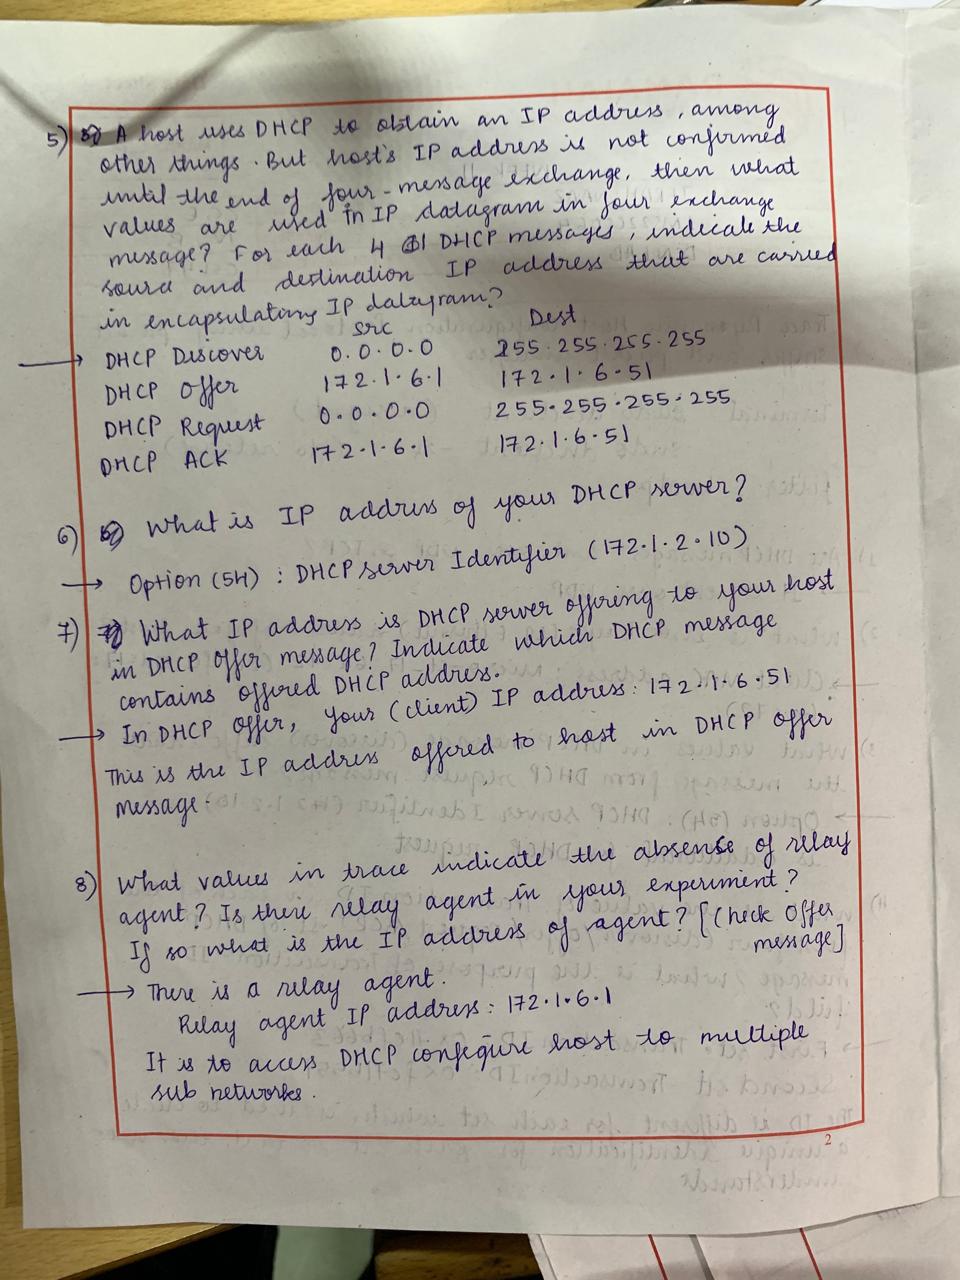 5) A host uses DHCP to obtain an IP address, among
other things. But host's IP address is not confirmed
until the end of four-message exchange, then what
values are used in IP datagram in four exchange
message? For each 4 DHCP messages, indicate the
source and destination IP address that are carried
in encapsulating IP datagram?
Src Dest
→ DHCP Discover 0.0.0.0 255.255.255.255
DHCP Offer 172.1.6.1 172.1.6.51
DHCP Request 0.0.0.0 255.255.255.255
DHCP ACK 172.1.6.1 172.1.6.51
6) What is IP address of your DHCP server?
→ Option (54) : DHCP server Identifier (172.1.2.10)
7) What IP address is DHCP server offering to your host
in DHCP Offer message? Indicate which DHCP message
contains offered DHCP address.
→ In DHCP Offer, Your (client) IP address: 172.1.6.51
This is the IP address offered to host in DHCP offer
message.
8) What values in trace indicate the absense of relay
agent? Is there relay agent in your experiment?
If so what is the IP address of agent? [Check Offer
message]
→ There is a relay agent.
Relay agent IP address: 172.1.6.1
It is to access DHCP configure host to multiple
sub networks.
2